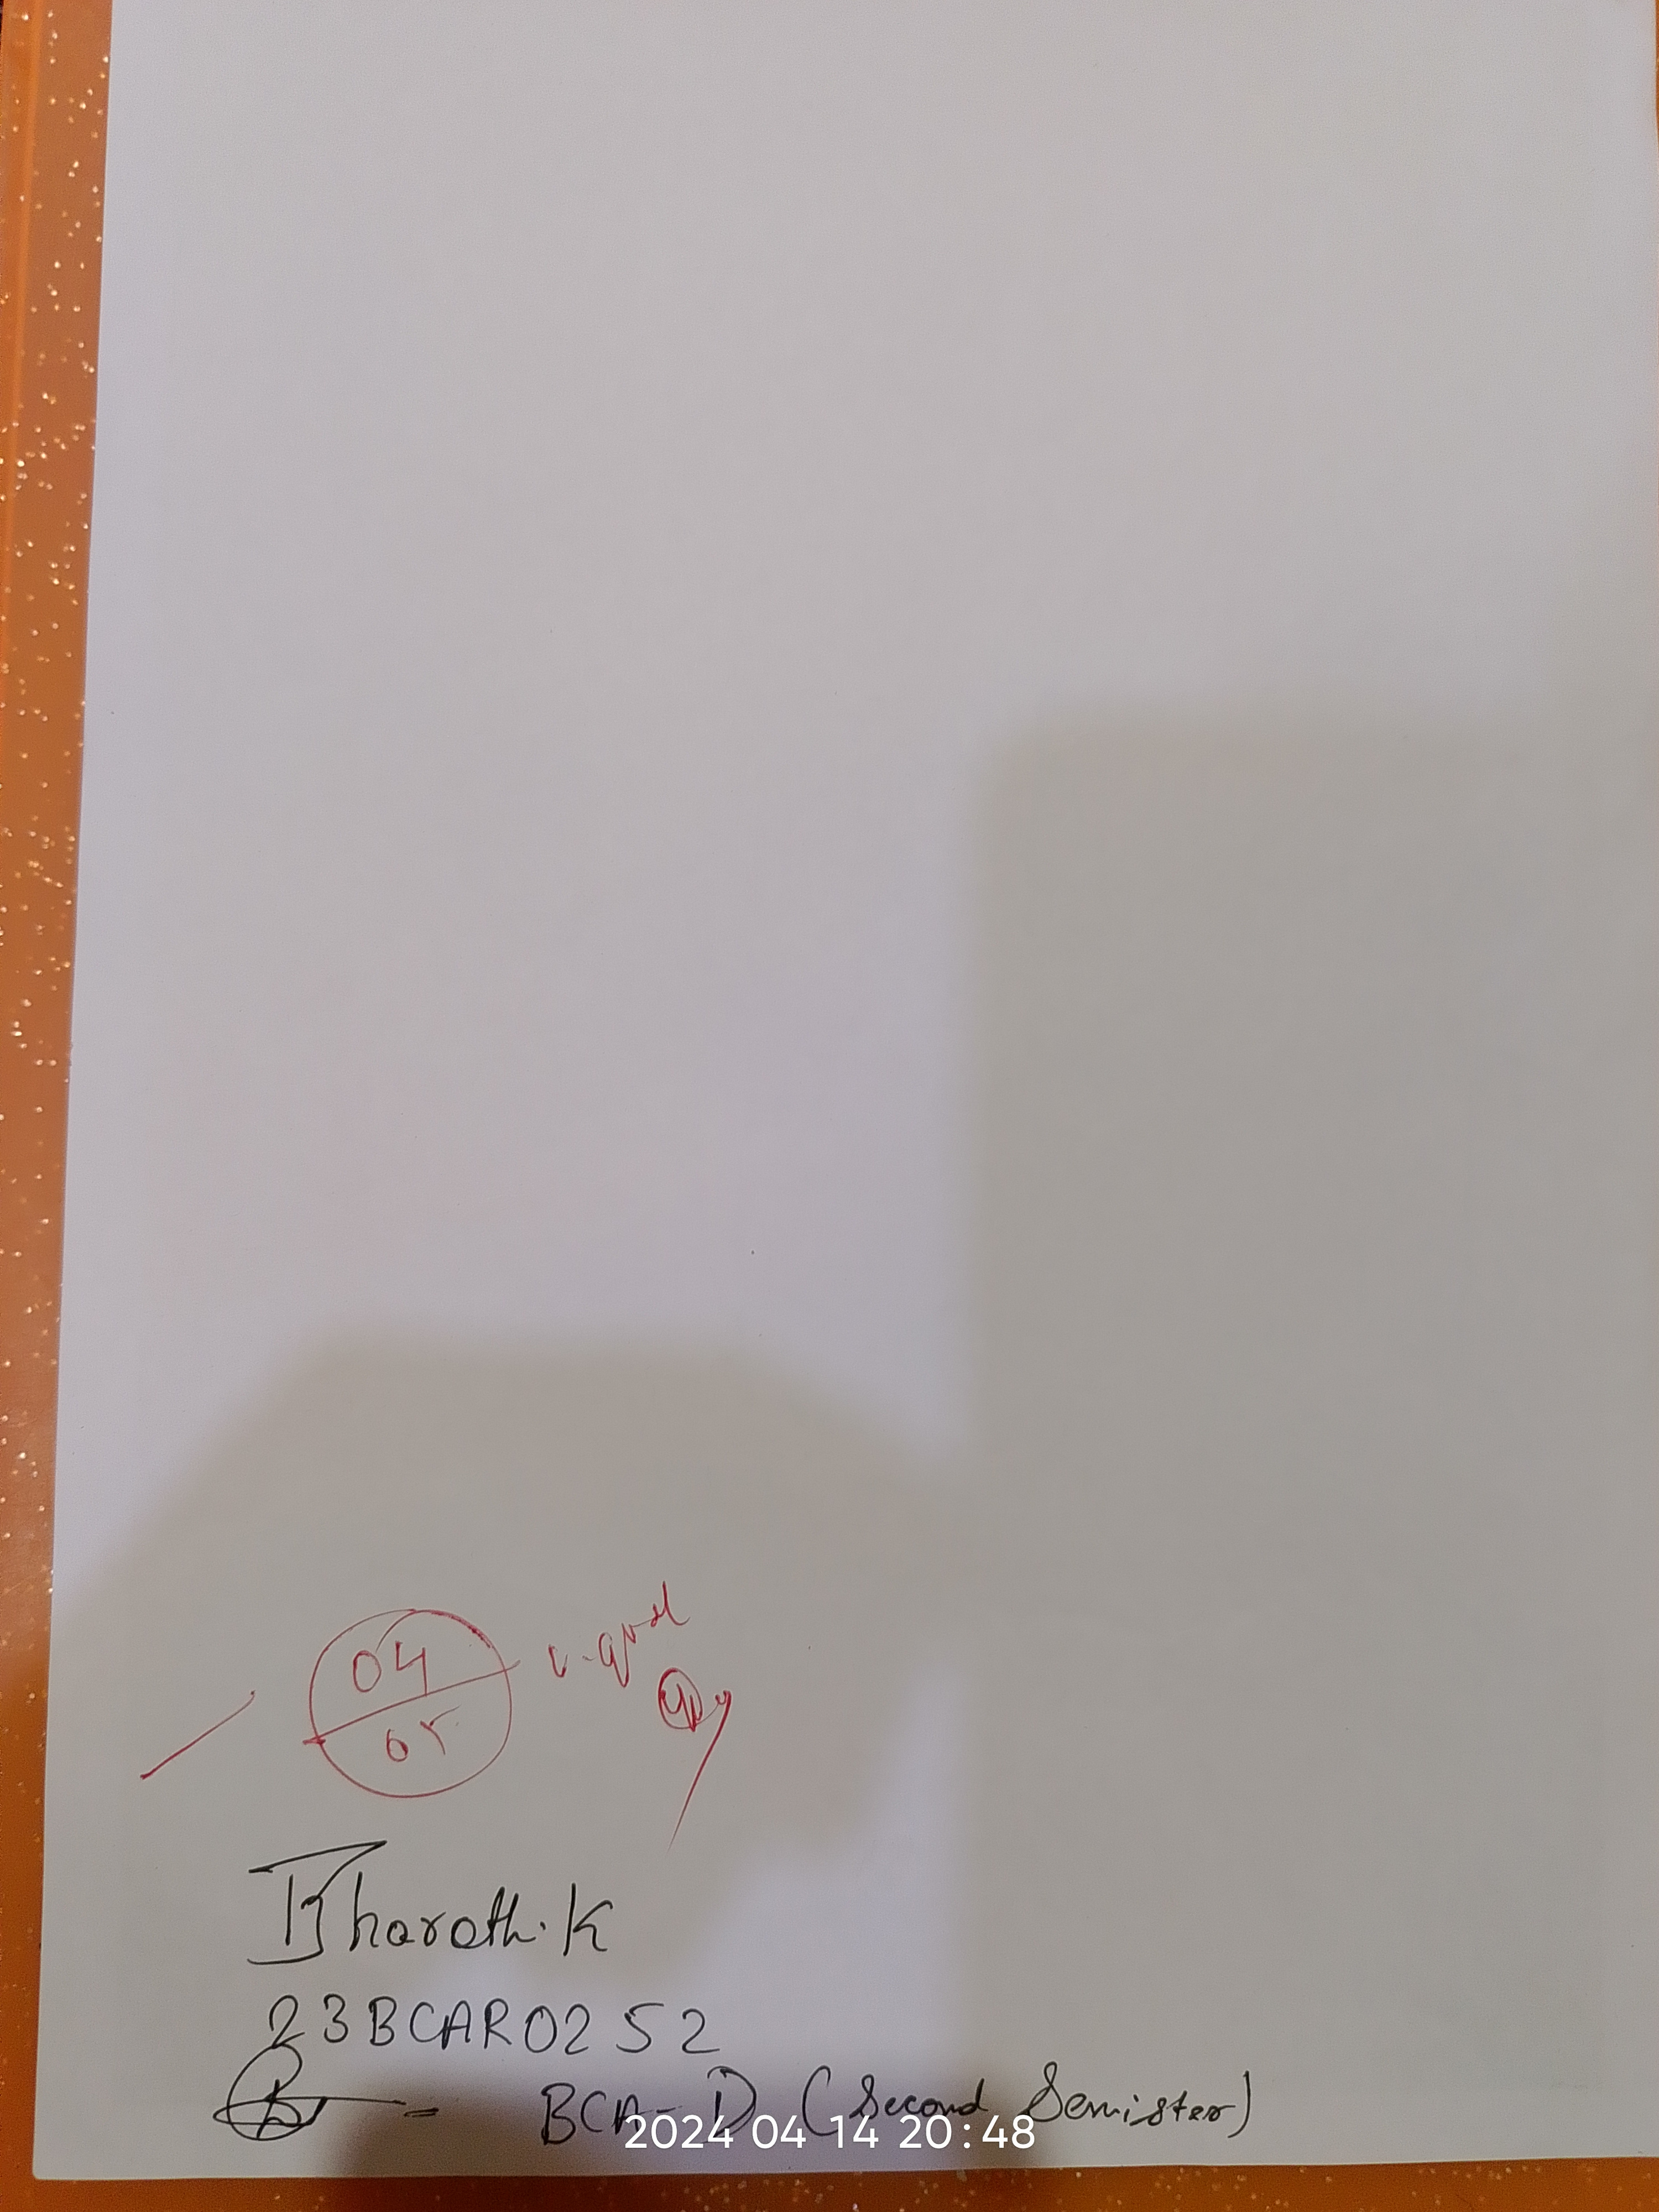 04 v.good
05
Bharath.K
23BCAR0252
= BCA-D (Second Semister)
2024 04 14 20:48